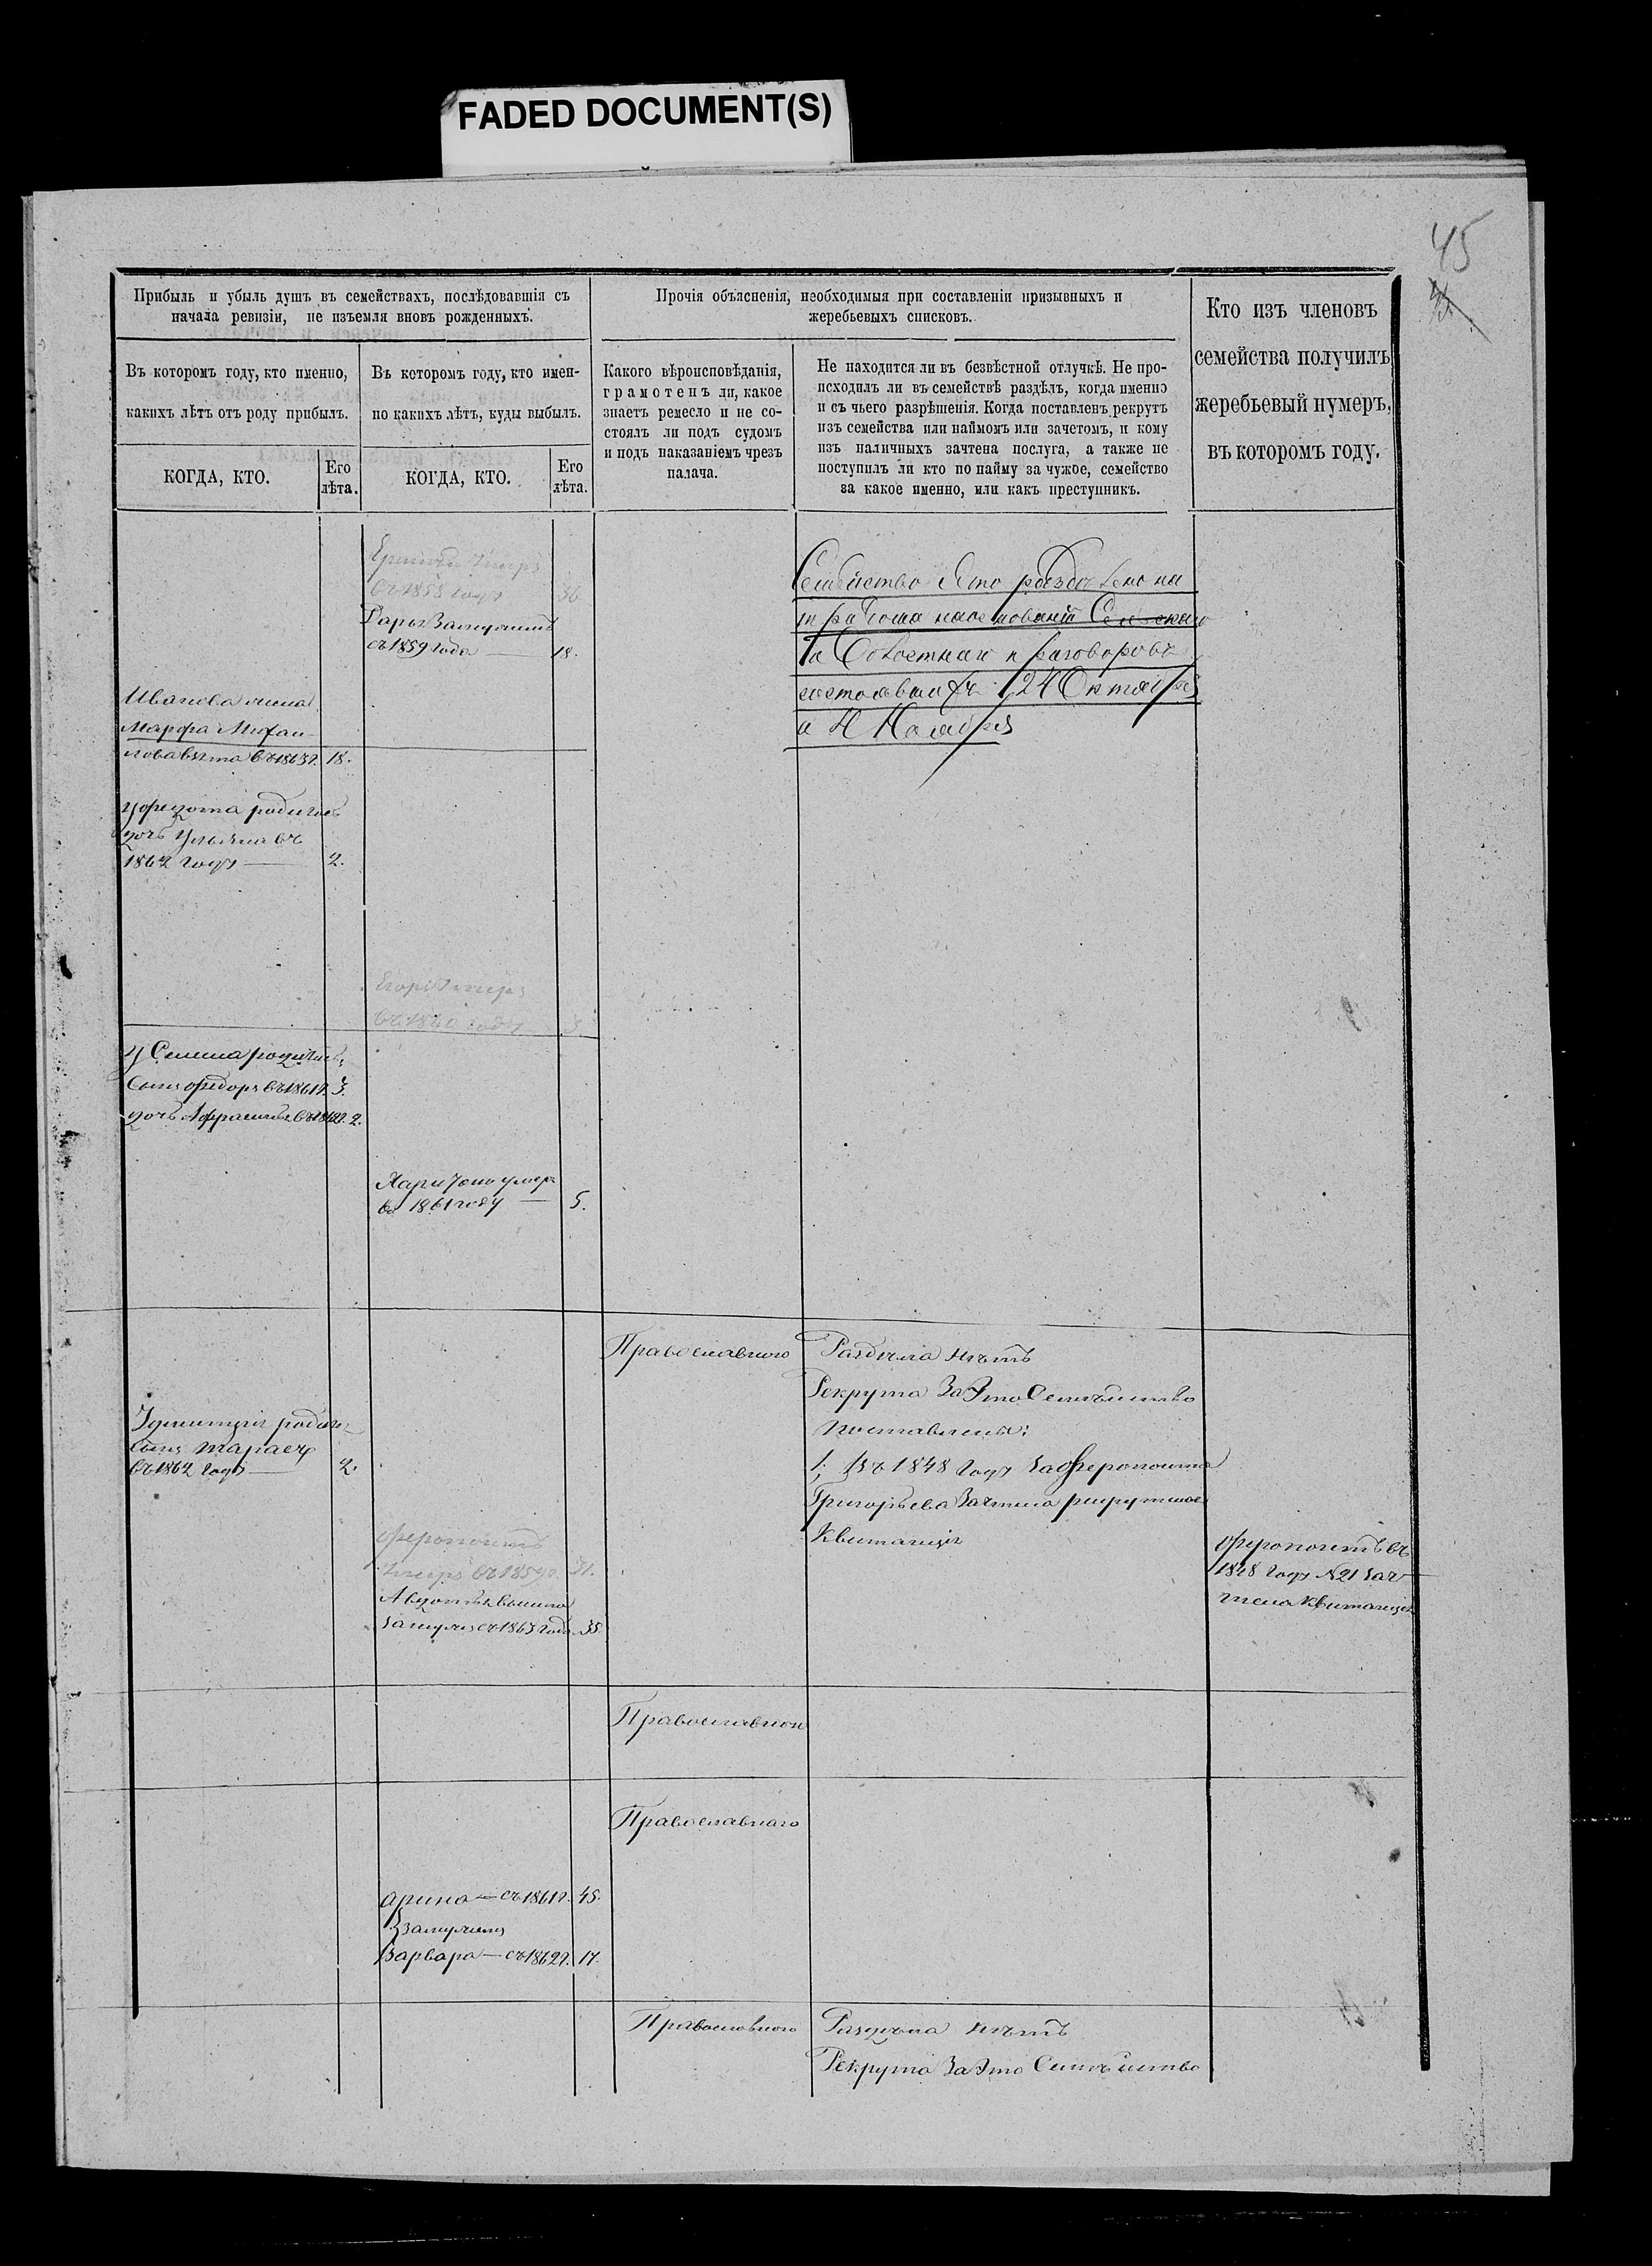 FADED DOCUMENT(S)
45
Прибыль и убыль душъ въ семействахъ, послѣдовавшія съ
начала ревизіи, не изъемля вновь рожденныхъ.
Въ которомъ году, кто именно,
какихъ лѣтъ отъ роду прибылъ.
КОГДА, КТО.
Его
лѣта.
Въ которомъ году, кто имен-
но какихъ лѣтъ, куды выбылъ.
КОГДА, КТО.
Его
лѣта.
Прочія объясненія, необходимыя при составленіи призывныхъ и
жеребьевыхъ списковъ.
Какого вѣроисповѣданія,
грамотенъ ли, какое
знаетъ ремесло и не со-
стоялъ ли подъ судомъ
и подъ наказаніемъ чрезъ
палача.
Не находится ли въ безвѣстной отлучкѣ. Не про-
исходилъ ли въ семействѣ раздѣлъ, когда именно
и съ чьего разрѣшенія. Когда поставленъ рекрутъ
изъ семейства или наймомъ или зачетомъ, и кому
изъ наличныхъ зачтена послуга, а также не
поступилъ ли кто по найму за чужое, семейство
за какое именно, или какъ преступникъ.
Кто изъ членовъ
семейства получилъ
жеребьевый нумеръ,
въ которомъ году.
умеръ
въ 1858 году 36
Дарья Замужемъ
съ 1859 года 18.
Семейство Это раздѣлено на
на Сельскаго
и Волостнаго приговоровъ
состоявшихъ 24 Октября
и Ноября
Иванова жена
Марфа Михаи-
лова взята въ 1863 г. 18.
у Федота родилась
дочь Ульяна въ
1862 году 2.
Егоръ умеръ
въ 1860 году 3.
у Семена родились
сынъ Федоръ въ 1861 г. 3.
дочь въ 1862 г. 2.
Харитонъ умеръ
въ 1861 году 5.
Православнаго
Раздѣла нѣтъ
Рекрута За Это Семѣйство
поставлены:
1, Въ 1848 году за Ферапонта
Григорьева Зачтена рекрутская
Квитанція
У Дмитрія родился
сынъ Тарасъ
въ 1862 году 2.
Ферапонтъ
умеръ въ 1859 г. 31.
Авдотья вышла
замужъ съ 1863 года 35.
Ферапонтъ въ
1848 году № 21 зач-
тена Квитанція
Православнаго
Православнаго
Арина — съ 1861 г. 45.
Замужемъ
Варвара — съ 1862 г. 17.
Православного
Раздѣла нѣтъ
Рекрута За Это Семѣйство